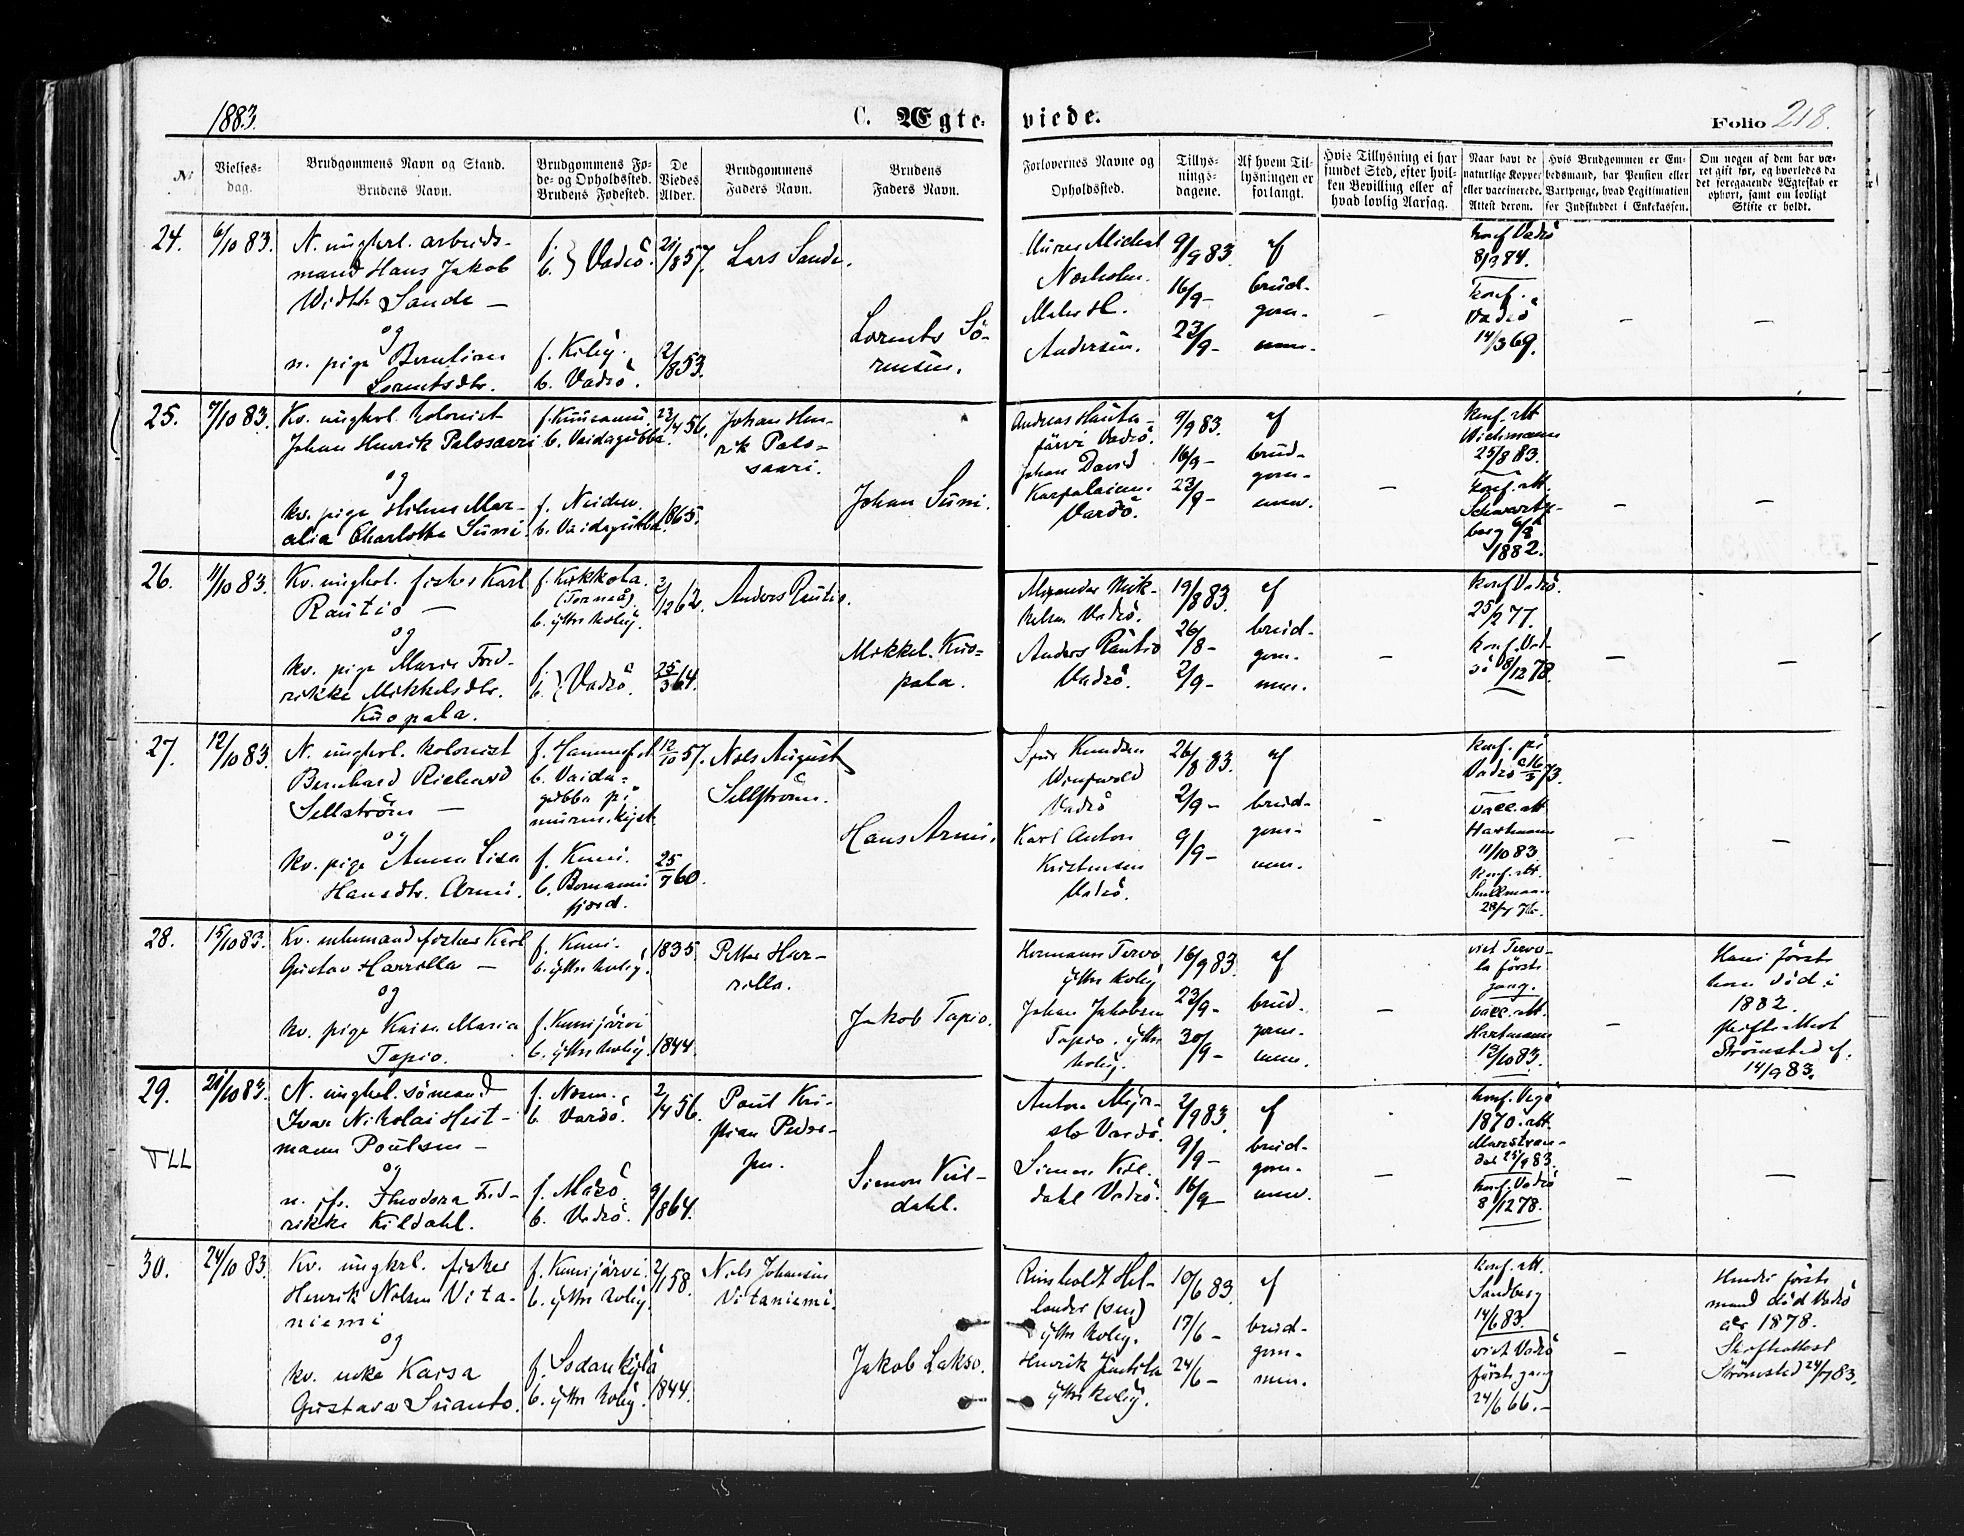 1883.
C. Ægte-
viede.
Folio 218.
No
Vielses-
dag.
Brudgommens Navn og Stand.
Brudens Navn.
Brudgommens Fø-
de- og Opholdssted.
Brudens Fødested.
De
Viedes
Alder.
Brudgommens
Faders Navn.
Brudens
Faders Navn.
Forlovernes Navne og
Opholdssted.
Tillys-
nings-
dagene.
Af hvem Til-
lysningen er
forlangt.
Hvis Tillysning ei har
fundet Sted, efter hvil-
ken Bevilling eller af
hvad lovlig Aarsag.
Naar havt de
naturlige Kopper
eller vaccinerede.
Attest derom.
Hvis Brudgommen er Em-
bedsmand, har Pension eller
Vartpenge, hvad Legitimation
for Indskuddet i Enkekassen.
Om nogen af dem har væ-
ret gift før, og hvorledes da
det foregaaende Ægteskab er
ophørt, samt om lovligt
Skifte er holdt.
24.
6/10 83.
N. ungkrl. arbeids-
mand Hans Jakob
Width Sande —
og
n. pige Berntine
Lorentsdtr.
f.
b. } Vadsö.
f. Kiby.
b. Vadsö.
21/8 57.
12/8 53.
Lars Sande.
Lorents Sö-
rensen.
Michal
Næsholm.
H.
Andersen.
9/9 83.
16/9 —
23/9 —
af
brud-
gom-
men.
—
konf. Vadsö
8/3 74.
konf.
Vadsö
14/3 69.
—
—
25.
7/10 83.
Kv. ungkrl. kolonist
Johan Henrik Palosaari
og
kv. pige Hilma Mar-
alia Charlotta Suni.
f. Kuusamo.
b. Vaidagubba.
f. Neiden.
b. Vaidagubba.
23/4 56.
1865.
Johan Hen-
rik Palo-
saari.
Johan Suni.
Andreas Hauta-
järvi Vadsö.
Johan David
Karpalainen
Vardö.
9/9 83.
16/9 —
23/9 —
af
brud-
gom-
men.
—
konf. att.
Wichmann
25/8 83.
konf. att.
Schwartz-
berg 6/8
1882.
—
—
26.
11/10 83.
Kv. ungkrl. fisker Karl
Rautio —
og
kv. pige Marie Fred-
rikke Mikkelsdtr.
Kuopala.
f. Kokkola.
(Torneå)
b. yttre kvby.
f.
b. } Vadsö.
3/12 62.
25/3 64.
Anders Rautio.
Mikkel Kuo-
pala.
Alexander Mik-
kelsen Vadsö.
Anders Rautio
Vadsö.
19/8 83.
26/8 —
2/9 —
af
brud-
gom-
men.
—
konf. Vadsö.
25/2 77.
konf. Vad-
sö 8/12 78.
—
—
27.
12/10 83.
N. ungkrl. kolonist
Bernhard Richard
Sellström —
og
kv. pige Anna Lisa
Hansdtr. Armi.
f. Hammerfest
b. Vaida-
gubba på
murm. kyst.
f. Kemi.
b. Bomeni
fjord.
12/10 57.
25/7 60.
Nils August
Sellström.
Hans Armi.
Knudsen
Vadsö
Karl Anton
Kristensen
Vadsö.
26/8 83.
2/9 —
9/9 —
af
brud-
gom-
men.
—
konf. på
Vadsö 16/3 73.
vacc. att.
Hartmann
11/10 83.
konf. att.
Snellmann
—
—
28.
15/10 83.
Kv. enkemand fisker Karl
Gustav Harrilla —
og
kv. pige Kaisa Maria
Tapio.
f. Kemi.
b. yttre kvby.
f. Kemijärvi
b. yttre kvby.
1835
1844.
Petter Har-
rilla.
Jakob Tapio.
Hermann Tervo
yttre kvby
Johan Jakobsen
Tapio. yttre
kvby.
16/9 83.
23/9 —
30/9 —
af
brud-
gom-
men.
—
viet Tervo-
la förste
gang.
vacc. att.
Hartmann
13/10 83.
—
Hans förste
kone död i
1882.
skifteattest
Strömsted af
14/9 83.
29.
TLL
21/10 83.
N. ungkrl. sömand
Ivar Nikolai Heit-
mann Poulsen —
og
n. jfr. Theodora Fred-
rikke Kildahl.
f. Næsn.
b. Vardö.
f. Masö.
b. Vadsö.
2/4 56.
9/8 64.
Poul Kri-
stian Peder-
sen.
Simon Kil-
dahl.
Anton Myr-
slo Vardö.
Simon Kil-
dahl Vadsö.
2/9 83.
9/9 —
16/9 —
af
brud-
gom-
men.
—
konf. Vega
1870. att.
Marstran-
der 25/9 83.
konf. Vadsö
8/12 78.
—
—
30.
24/10 83.
Kv. ungkrl. fisker
Henrik Nilsen Vita-
niemi
og
kv. enke Kaisa
Gustava Suanto.
f. Kemijärvi.
b. yttre kvby.
f. Sodankylä
b. yttre kvby.
2/1 58.
1844.
Nils Johansen
Vitaniemi.
Jakob Lakso.
Reinholdt Hel-
lander (sen)
yttre kvby.
Henrik Juntila
yttre kvby.
10/6 83.
17/6 —
24/6 —
af
brud-
gom-
men.
konf. att.
Sandberg
14/6 83.
viet Vadsö
förste gang
24/6 66. —
—
Hendes förste
mand död Vadsö
år 1878.
Skifteattest
Strömsted 24/7 83.